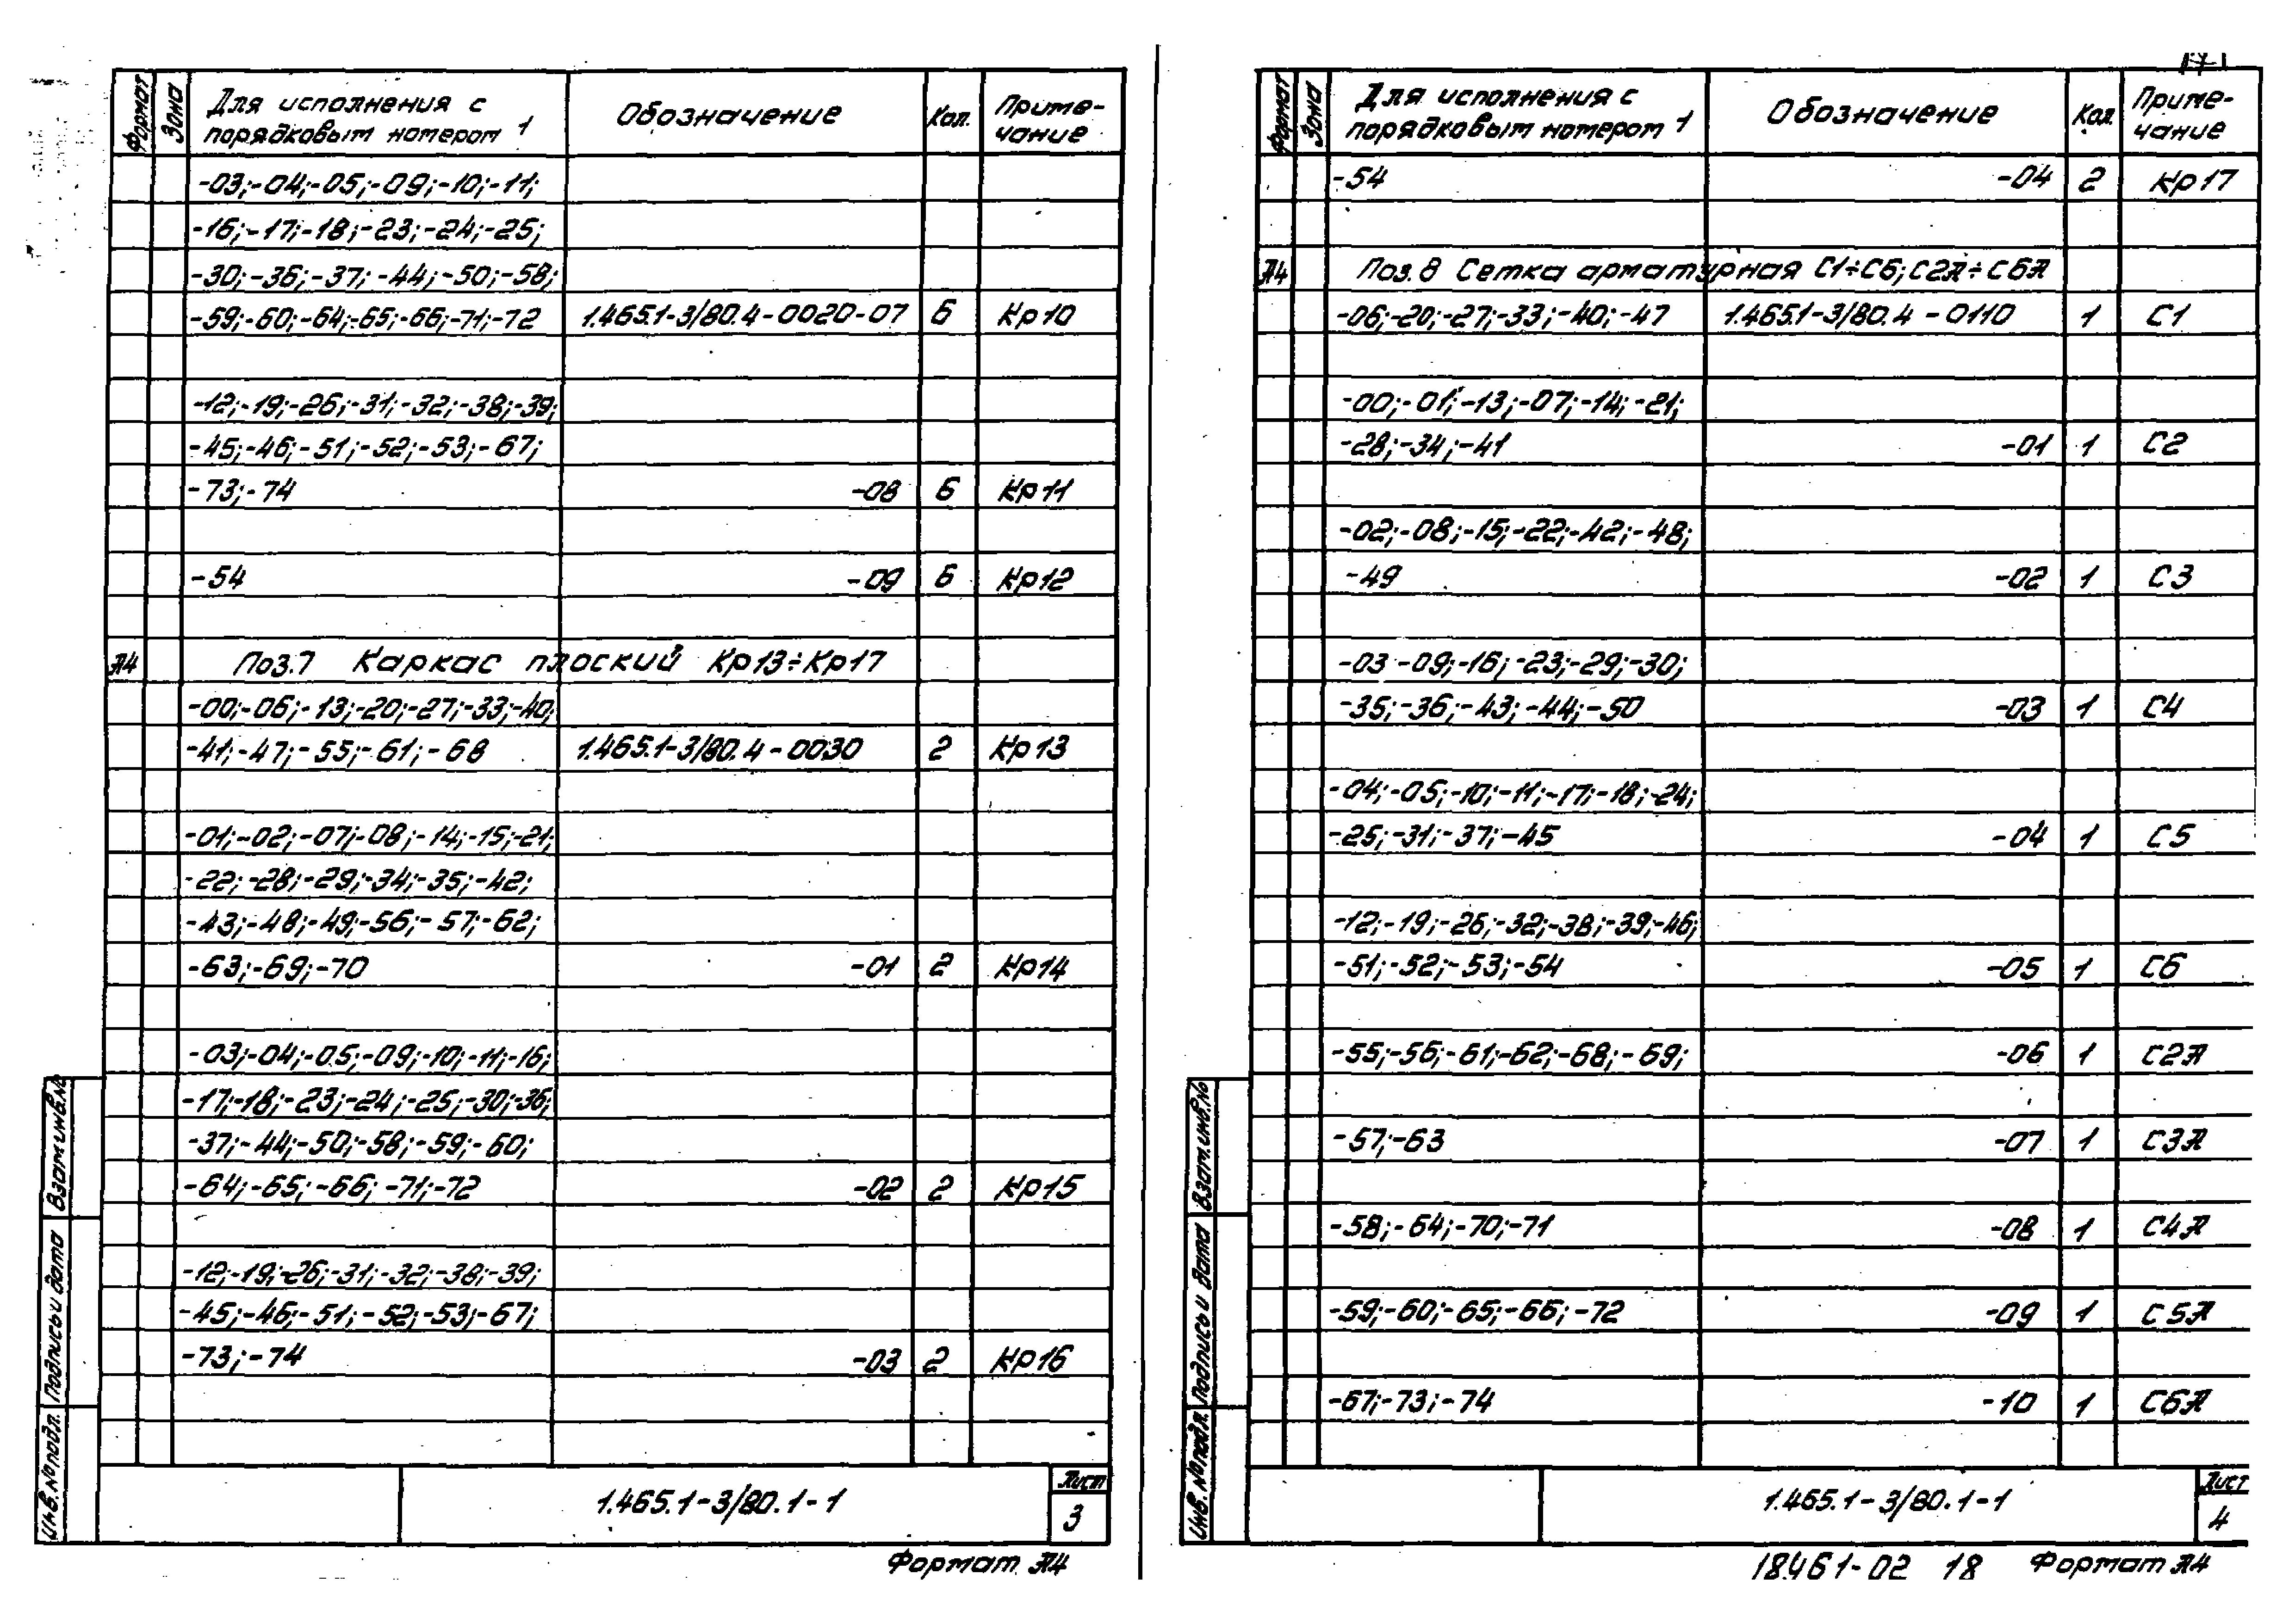 Формат Зона Для исполнения с порядковым номером 1 Обозначение Кол. Примечание
-03;-04;-05;-09;-10;-11;
-16;-17;-18;-23;-24;-25;
-30;-36;-37;-44;-50;-58;
-59;-60;-64;-65;-66;-71;-72 1.465.1-3/80.4-0020-07 6 Кр10
-12;-19;-26;-31;-32;-38;-39;
-45;-46;-51;-52;-53;-67;
-73;-74 -08 6 Кр11
-54 -09 6 Кр12
А4 Поз.7 Каркас плоский Кр13÷Кр17
-00;-06;-13;-20;-27;-33;-40;
-41;-47;-55;-61;-68 1.465.1-3/80.4-0030 2 Кр13
-01;-02;-07;-08;-14;-15;-21;
-22;-28;-29;-34;-35;-42;
-43;-48;-49;-56;-57;-62;
-63;-69;-70 -01 2 Кр14
-03;-04;-05;-09;-10;-11;-16;
-17;-18;-23;-24;-25;-30;-36;
-37;-44;-50;-58;-59;-60;
-64;-65;-66;-71;-72 -02 2 Кр15
-12;-19;-26;-31;-32;-38;-39;
-45;-46;-51;-52;-53;-67;
-73;-74 -03 2 Кр16
Инв. № подл. Подпись и дата Взам.инв.№
1.465.1-3/80.1-1 Лист 3
Формат А4
17
Формат Зона Для исполнения с порядковым номером 1 Обозначение Кол. Примечание
-54 -04 2 Кр17
А4 Поз.8 Сетка арматурная С1÷С6;С2А÷С6А
-06;-20;-27;-33;-40;-47 1.465.1-3/80.4-0110 1 С1
-00;-01;-13;-07;-14;-21;
-28;-34;-41 -01 1 С2
-02;-08;-15;-22;-42;-48;
-49 -02 1 С3
-03 -09;-16;-23;-29;-30;
-35;-36;-43;-44;-50 -03 1 С4
-04;-05;-10;-11;-17;-18;-24;
-25;-31;-37;-45 -04 1 С5
-12;-19;-26;-32;-38;-39;-46;
-51;-52;-53;-54 -05 1 С6
-55;-56;-61;-62;-68;-69; -06 1 С2А
-57;-63 -07 1 С3А
-58;-64;-70;-71 -08 1 С4А
-59;-60;-65;-66;-72 -09 1 С5А
-67;-73;-74 -10 1 С6А
Инв. № подл. Подпись и дата Взам.инв.№
1.465.1-3/80.1-1 Лист 4
18461-02 18 Формат А4